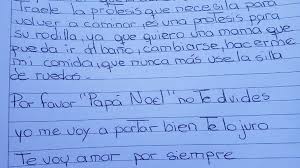 Traele la protesis que necesita para
volver a caminar, es una protesis para
su rodilla, ya que quiero una mama que
pueda ir al baño, cambiarse, hacerme
mi comida, que nunca más use la silla
de ruedas.
Por favor "Papá Noel" no Te dvides
yo me voy a portar bien Te lo juro
Te voy amar por siempre